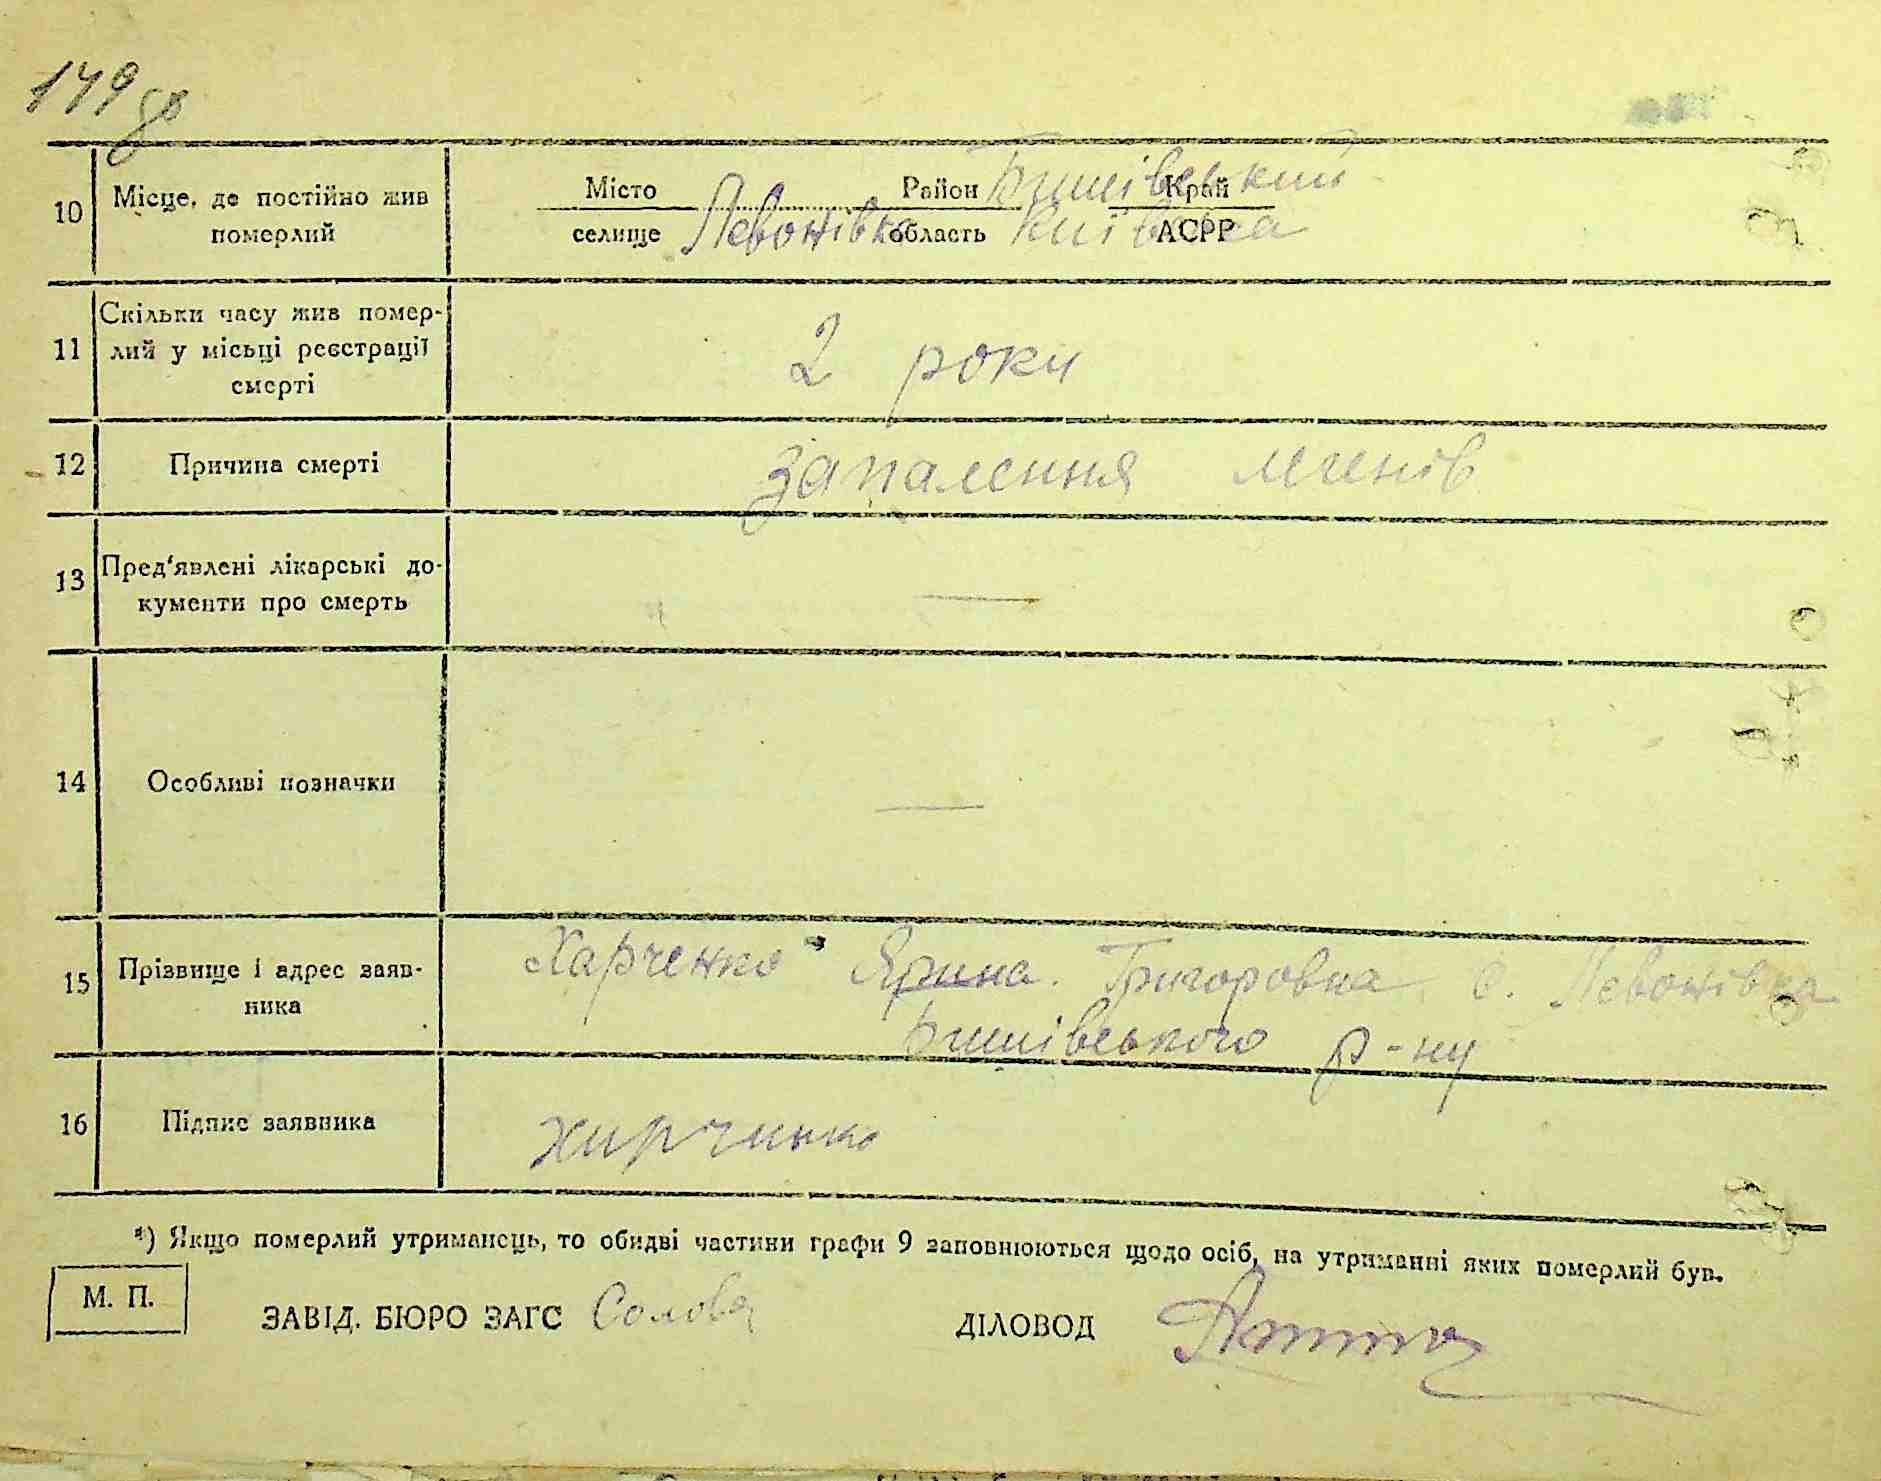 149 зв
10 Місце, де постійно жив померлий Місто Район Ржищівський Край
селище Левонівка область Київська АСРР
11 Скільки часу жив помер-
лий у місьці реєстрації
смерті
2 роки
12 Причина смерті запалення легенів
13 Пред'явлені лікарські до-
кументи про смерть —
14 Особливі позначки —
15 Прізвище і адрес заяв-
ника
Харченко Ярина Григоровна с. Левонівка
р-ну
16 Підпис заявника хирчинко
*) Якщо померлий утриманець, то обидві частини графи 9 заповнюються щодо осіб, на утриманні яких померлий був.
М. П.
ЗАВІД. БЮРО ЗАГС ДІЛОВОД